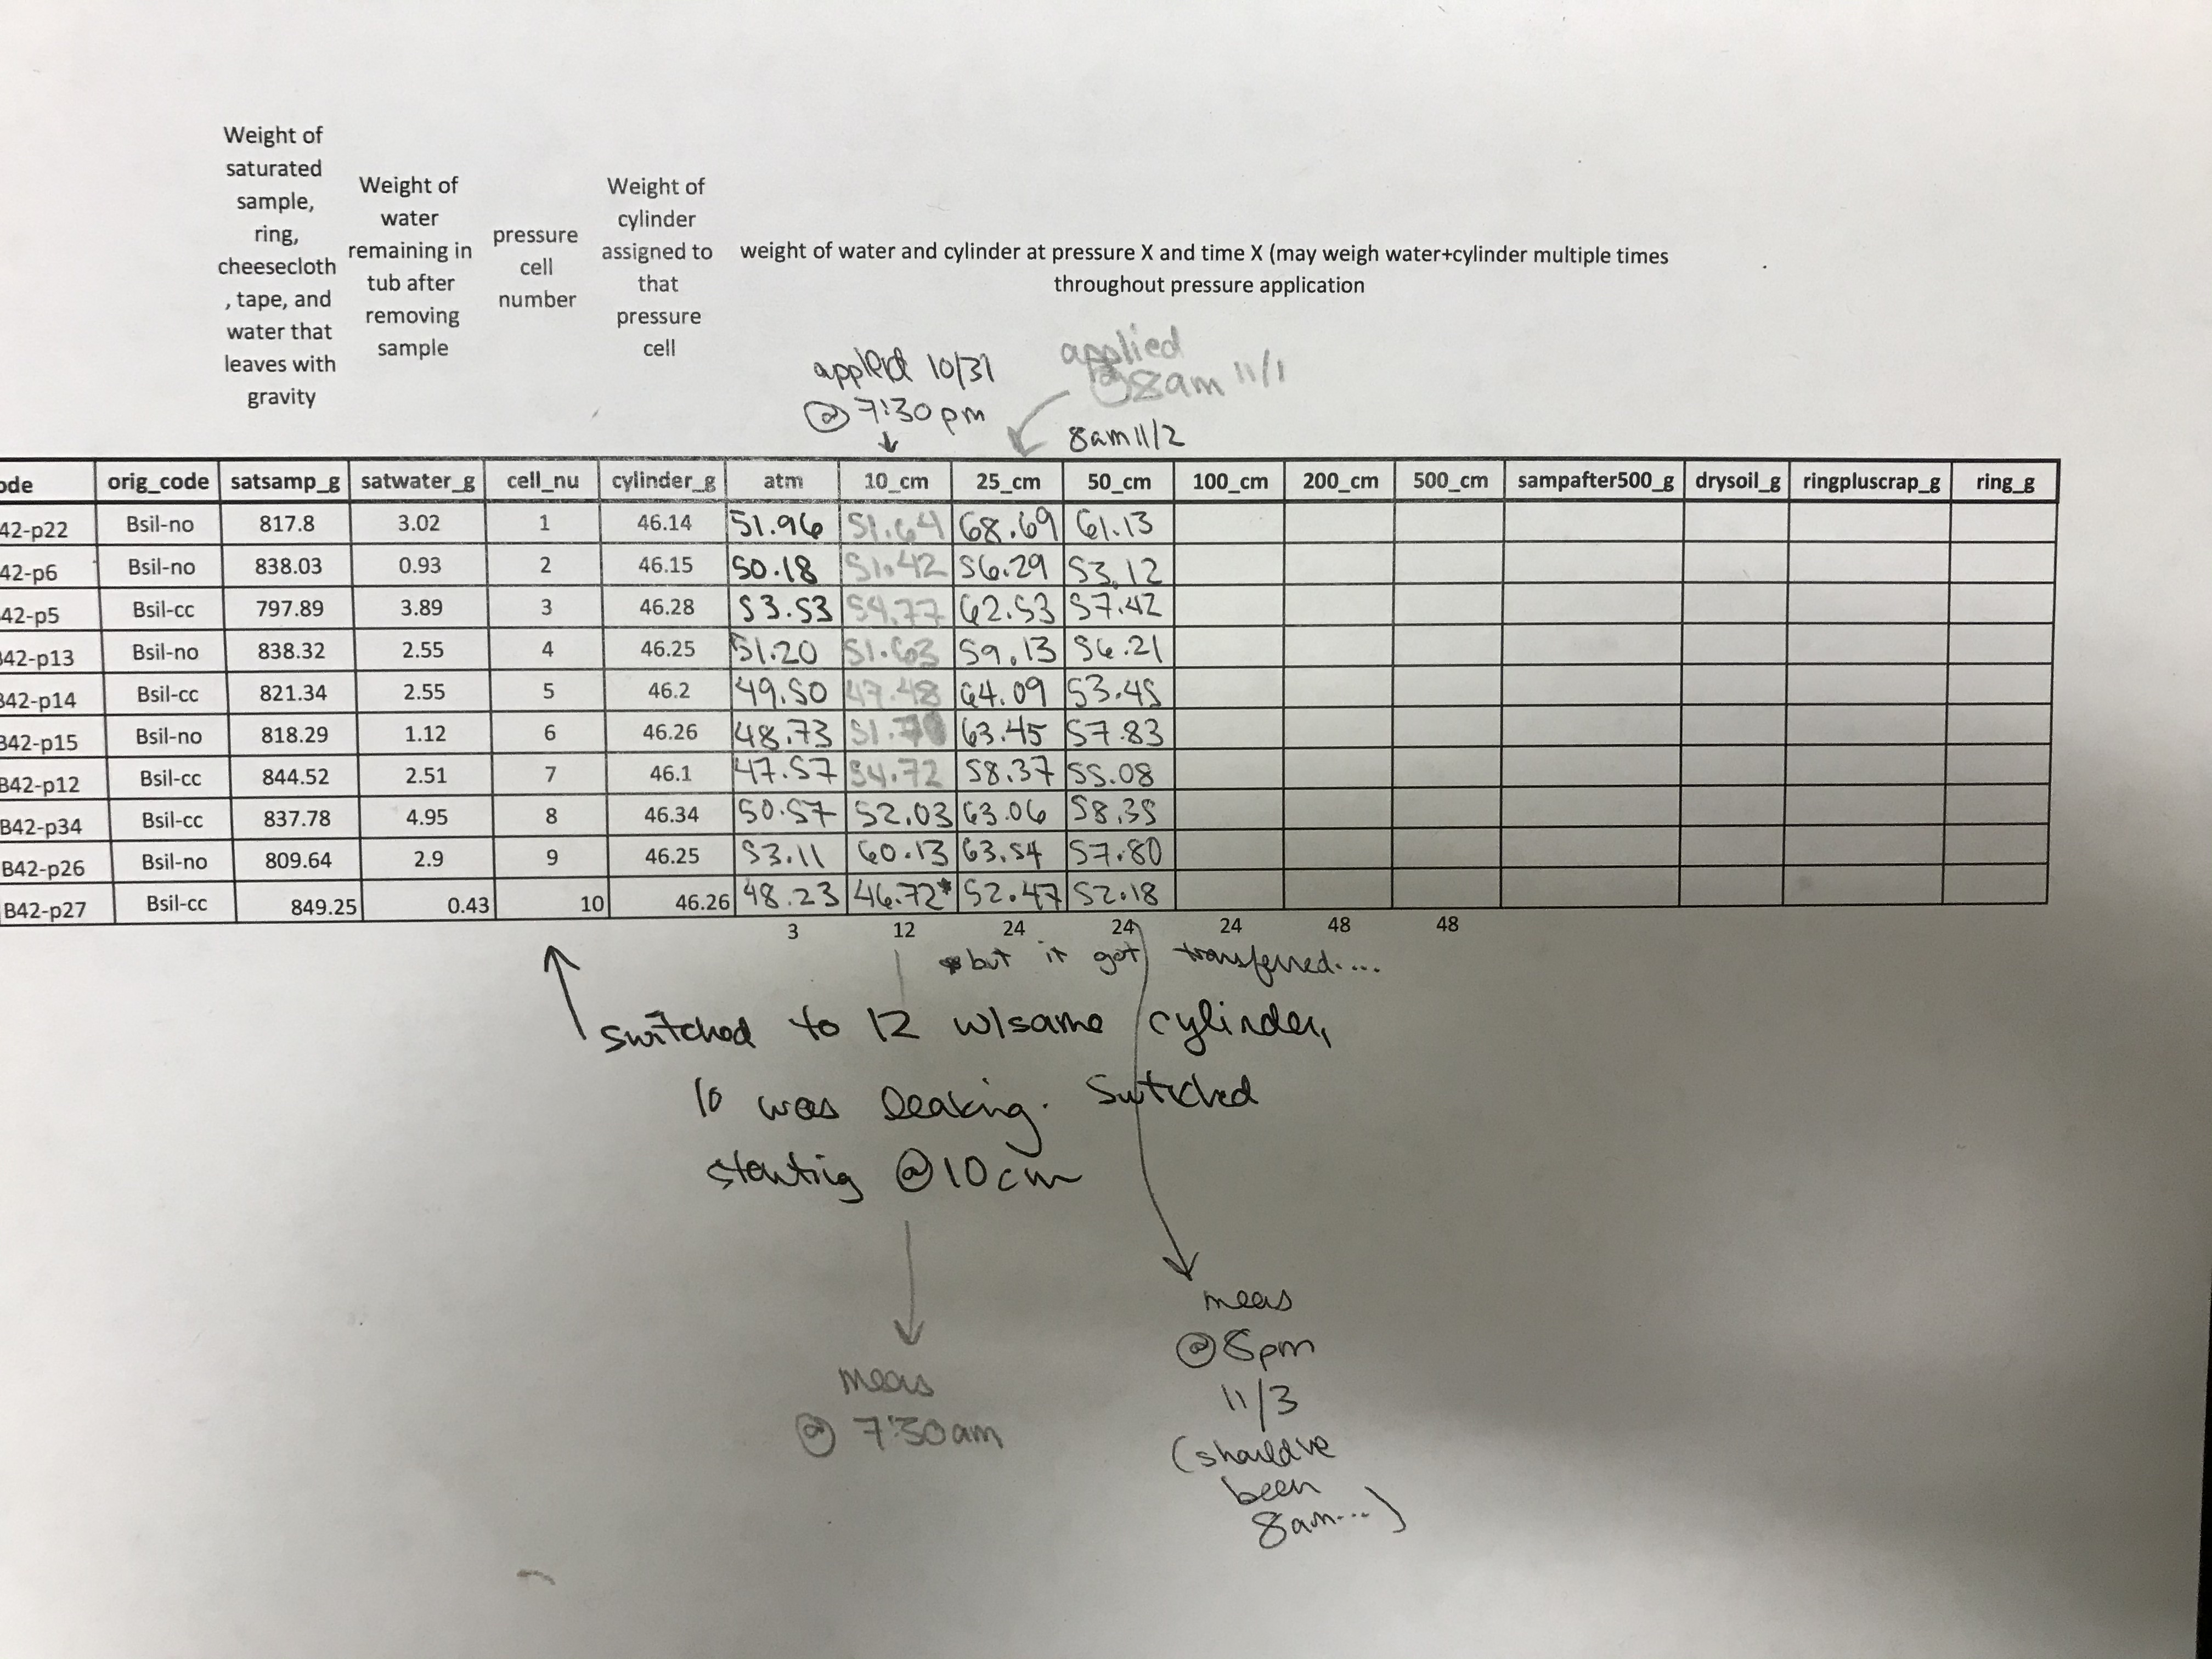 Weight of
saturated
sample,
ring,
cheesecloth
, tape, and
water that
leaves with
gravity
Weight of
water
remaining in
tub after
removing
sample
pressure
cell
number
Weight of
cylinder
assigned to
that
pressure
cell
weight of water and cylinder at pressure X and time X (may weigh water+cylinder multiple times
throughout pressure application
applied 10/31
@ 7:30pm
applied
@8am 11/1
8am 11/2
ode orig_code satsamp_g satwater_g cell_nu cylinder_g atm 10_cm 25_cm 50_cm 100_cm 200_cm 500_cm sampafter500_g drysoil_g ringpluscrap_g ring_g
42-p22 Bsil-no 817.8 3.02 1 46.14 51.96 51.64 68.69 61.13
42-p6 Bsil-no 838.03 0.93 2 46.15 50.18 51.42 56.29 53.12
42-p5 Bsil-cc 797.89 3.89 3 46.28 53.53 54.77 62.53 57.42
42-p13 Bsil-no 838.32 2.55 4 46.25 51.20 51.63 59.13 56.21
42-p14 Bsil-cc 821.34 2.55 5 46.2 49.50 47.48 64.09 53.45
B42-p15 Bsil-no 818.29 1.12 6 46.26 48.73 63.45 57.83
B42-p12 Bsil-cc 844.52 2.51 7 46.1 47.57 54.72 58.37 55.08
B42-p34 Bsil-cc 837.78 4.95 8 46.34 50.57 52.03 63.06 58.35
B42-p26 Bsil-no 809.64 2.9 9 46.25 53.11 60.13 63.54 57.80
B42-p27 Bsil-cc 849.25 0.43 10 46.26 48.23 46.72* 52.47 52.18
3 12 24 24 24 48 48
*but it got transferred....
switched to 12 w/same cylinder,
10 was leaking. Switched
starting @10cm
meas
@ 7:30am
meas
@8pm
11/3
(should've
been
8am...)